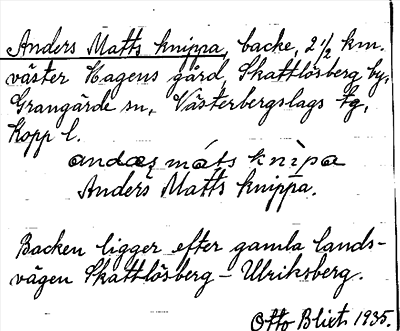 Anders Matts knippa, backe, 2 1/2 km.
väster Hagens gård, Skattlösberg by,
Grangärde sn, Västerbergslags tg,
Kopp l.
andaṣ máts knìpa
Anders Matts knippa.
Backen ligger efter gamla lands-
vägen Skattlösberg - Ulriksberg.
Otto Blixt 1935.